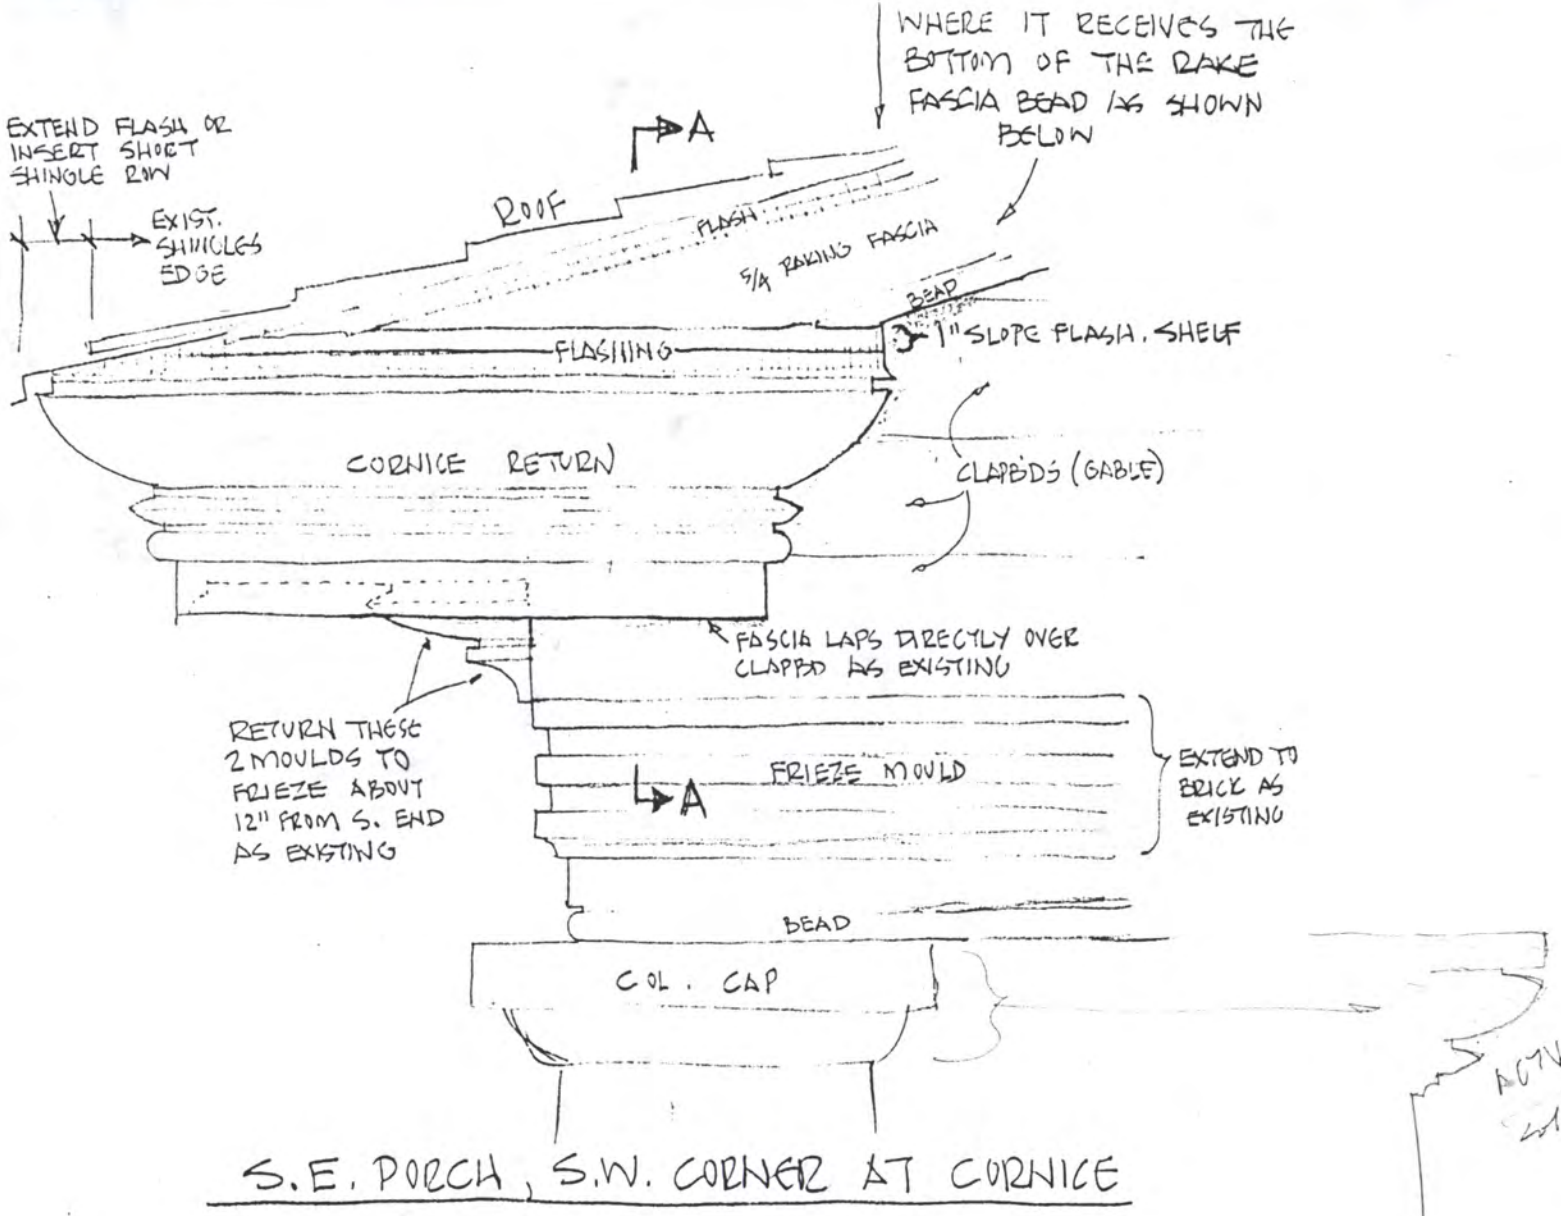 WHERE IT RECEIVES THE
BOTTOM OF THE RAKE
FASCIA BEAD AS SHOWN
BELOW
EXTEND FLASH OR
INSERT SHORT
SHINGLE ROW
A
EXIST.
SHINGLES
EDGE
ROOF
FLASH
5/4 RAKING FASCIA
BEAD
FLASHING
1" SLOPE FLASH. SHELF
CORNICE RETURN
CLAPBDS (GABLE)
FASCIA LAPS DIRECTLY OVER
CLAPBD AS EXISTING
RETURN THESE
2 MOULDS TO
FRIEZE ABOUT
12" FROM S. END
AS EXISTING
FRIEZE MOULD
A
EXTEND TO
BRICK AS
EXISTING
BEAD
COL. CAP
S.E. PORCH, S.W. CORNER AT CORNICE